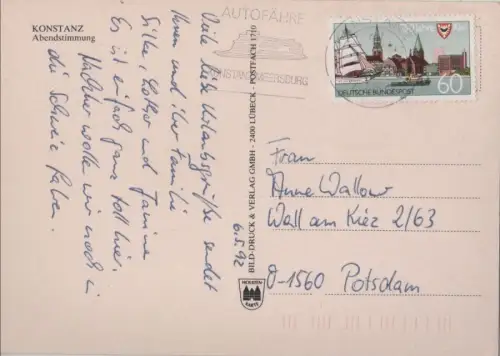 KONSTANZ
Abendstimmung
AUTOFÄHRE
KONSTANZ-MEERSBURG
60
DEUTSCHE BUNDESPOST
Viele liebe Urlaubsgrüße sendet
Ihnen und ihrer Familie
Silke, Lothar und Janine
Es ist einfach ganz toll hier.
Nachher wollen wir noch in
die Schweiz fahren.
6.5.92
BILD-DRUCK & VERLAG GMBH - 2400 LÜBECK - POSTFACH 1710
KARTE
Frau
Anne Wallour
Wall am Kiez 2/63
O-1560 Potsdam